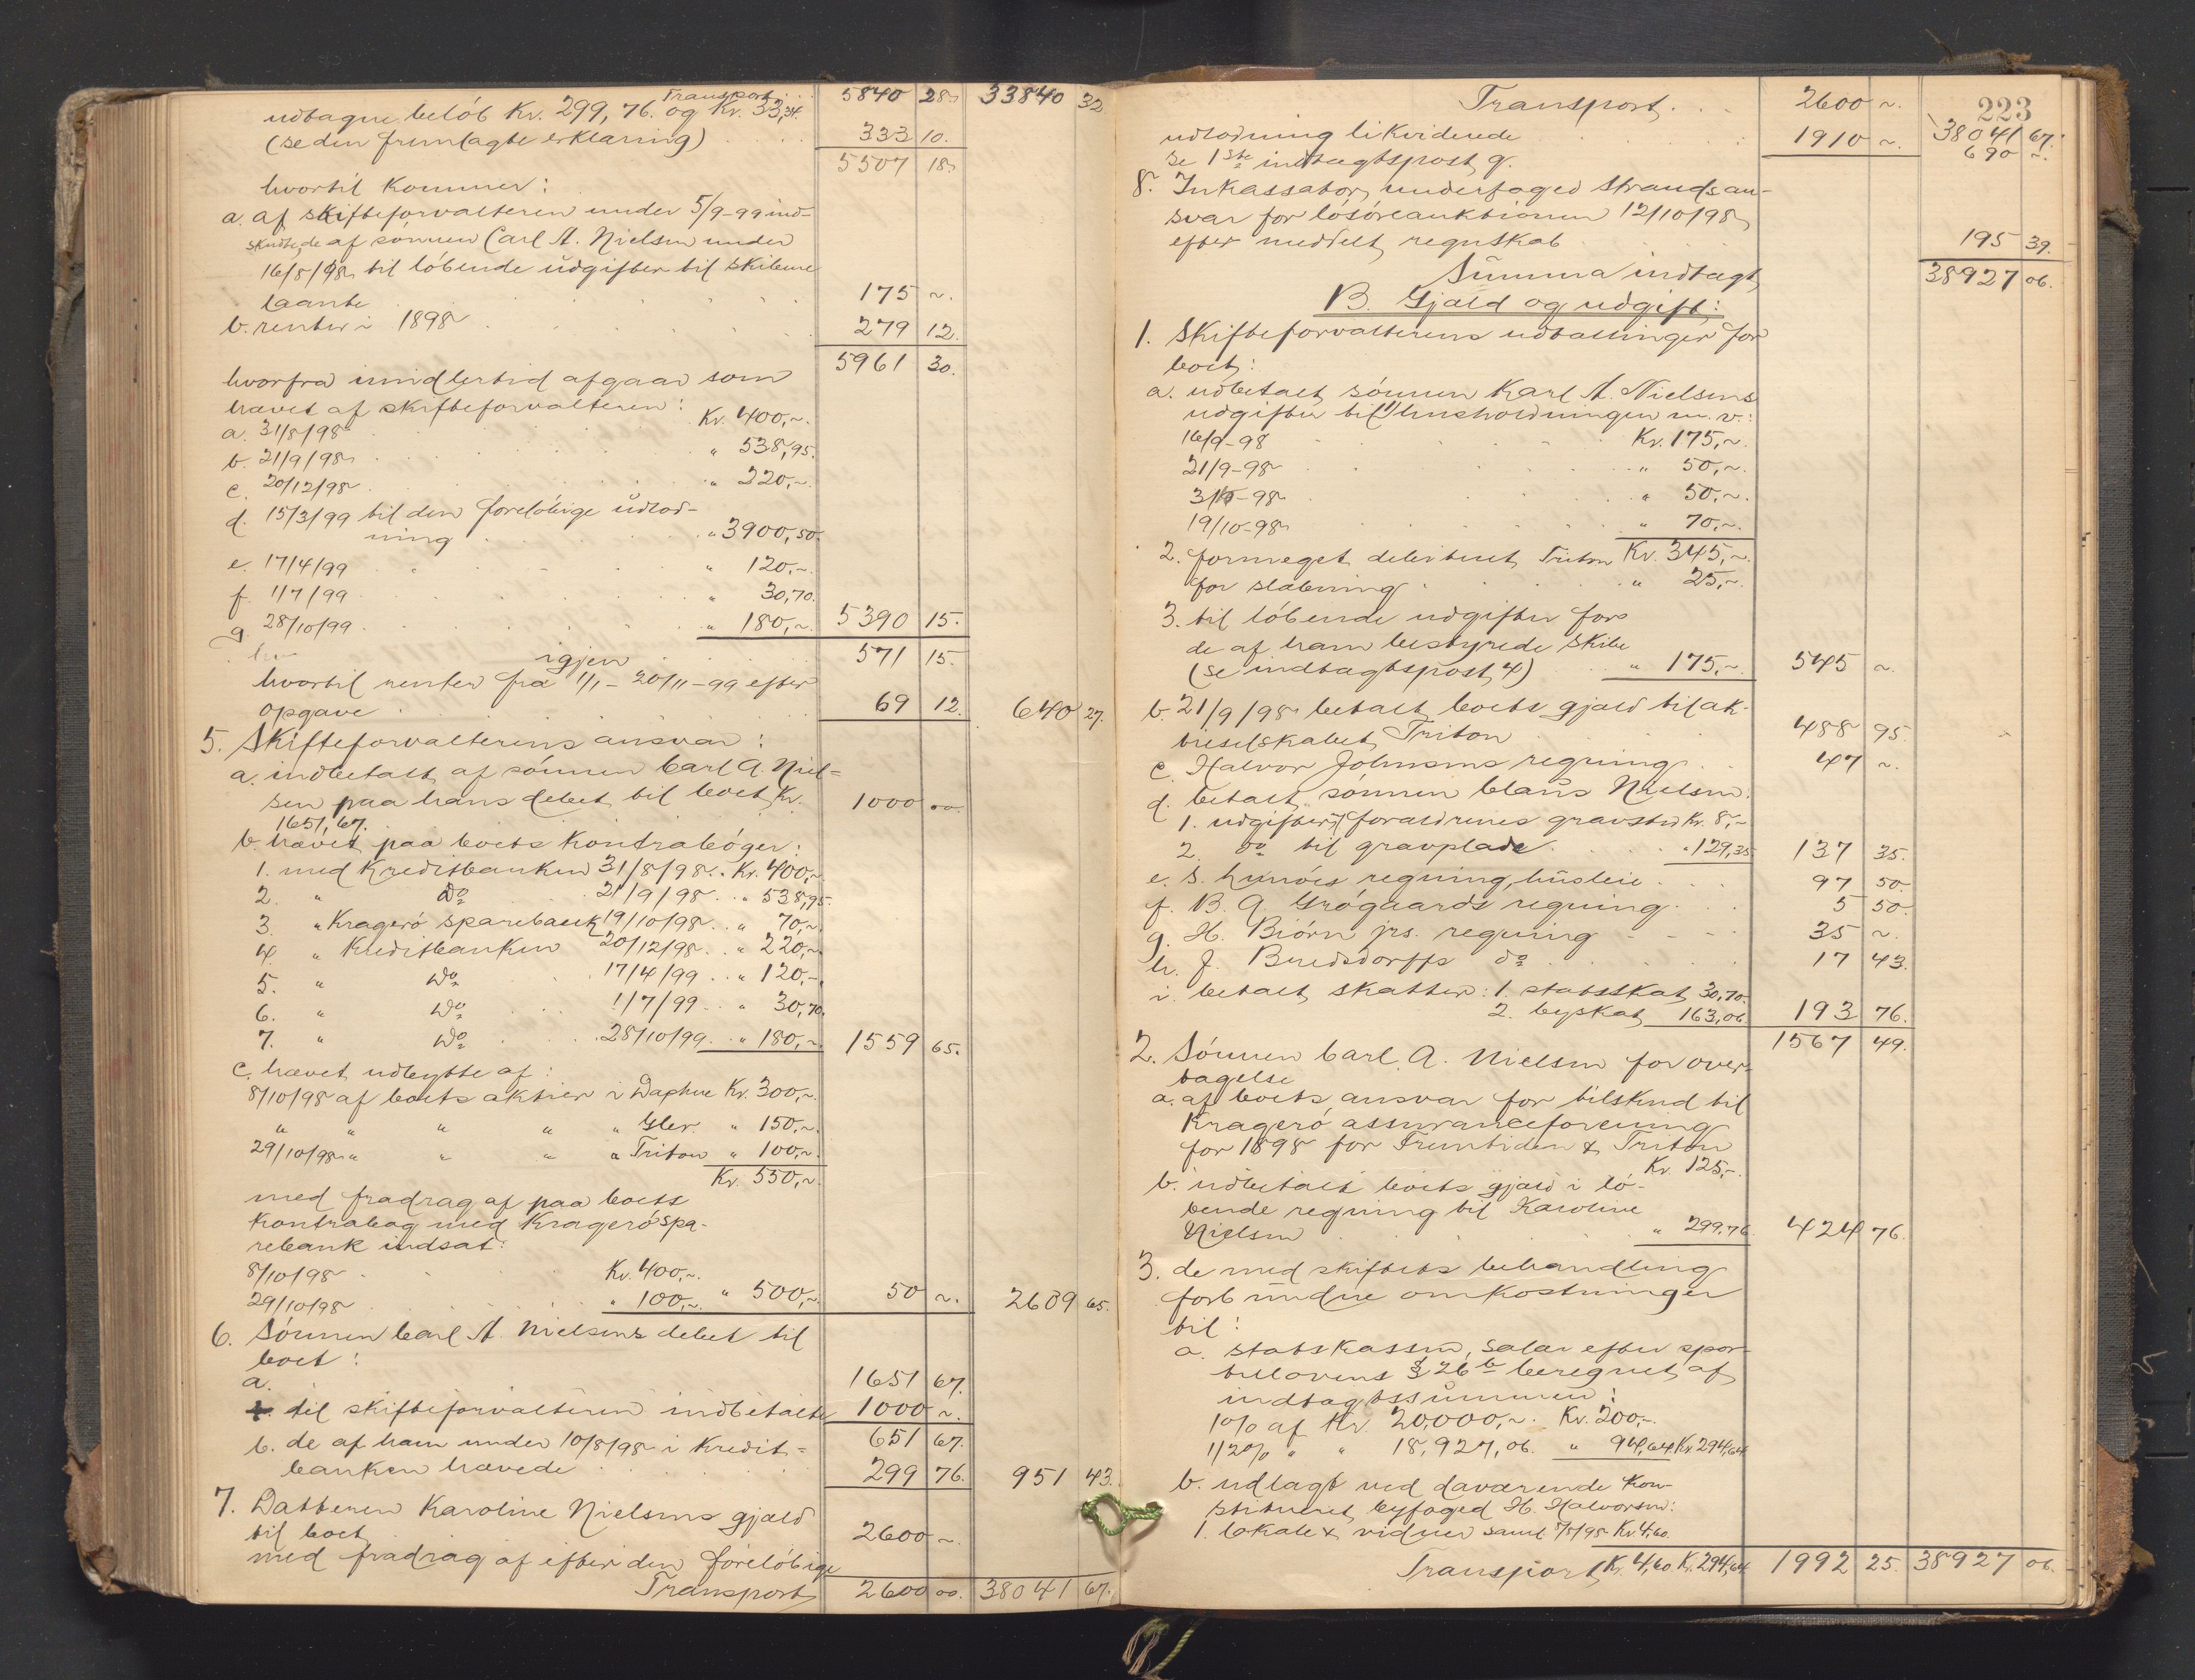 Transport . . . 5840 28. 33840 32
udtagne beløb Kr. 299,76. og Kr. 33,34.
(se den fremlagte erklæring) . . . 333 10.
5507 18.
hvortil kommer:
a. af skifteforvalteren under 5/9-99 ind-
skudte, de af sønnen Carl A. Nielsen under
16/8/98 til løbende udgifter til skibene
laante . . . 175 ~.
b. renter i 1898 . . . 279 12.
5961 30.
hvorfra imidlertid afgaar som
hævet af skifteforvalteren:
a. 31/8/98 . . . Kr. 400,~.
b. 21/9/98 . . . " 538,95.
c. 20/12/98 . . . " 220,~.
d. 15/3/99 til den foreløbige udlod-
ning . . . " 3900,50.
e. 17/4/99 . . . " 120,~.
f. 1/7/99 . . . " 30,70.
g. 28/10/99 . . . " 180,~. 5390 15.
igjen . . . 571 15.
hvortil renter fra 1/1 - 20/11-99 efter
opgave . . . 69 12. 640 27.
5. Skifteforvalterens ansvar:
a. indbetalt af sønnen Carl A. Niel=
sen paa hans debet til boet Kr. 1000 00.
1651,67.
b. hævet paa boets kontrabøger:
1. med Kreditbanken 31/8/98 . Kr. 400,~.
2. " do 21/9/98 . . " 538,95.
3. " Kragerø sparebank 19/10/98 . . " 70,~.
4. " Kreditbanken 20/12/98 . . " 220,~.
5. " do 17/4/99 . . " 120,~.
6. " do 1/7/99 . . " 30,70.
7. " do 28/10/99 . . " 180,~. 1559 65.
c. hævet udbytte af:
8/10/98 af boets aktier i Daphne Kr. 300,~.
" " " " " Gler. " 150,~.
29/10/98 " " " " Triton " 100,~.
Kr. 550,~.
med fradrag af paa boets
kontrabog med Kragerø spa-
rebank indsat:
8/10/98 . . . Kr. 400,~.
29/10/98 . . . " 100,~. " 500,~. 50 ~. 2609 65.
6. Sønnen Carl A. Nielsens debet til
boet:
a. 1651 67.
til skifteforvalteren indbetalte 1000 ~.
651 67.
b. de af ham under 10/8/98 i Kredit=
banken hævede . . . 299 76. 951 43.
7. Datteren Karoline Nielsens gjæld
til boet 2600 ~.
med fradrag af efter den foreløbige
Transport 2600 00. 38041 67.
223
Transport . . . 2600 ~. 38041 67.
udlodning likviderede . . . 1910 ~. 690 ~.
se 1ste indtægtspost g.
8. Inkassator, underfoged Strands an-
svar for løsøreauktionen 12/10/98
efter meddelt regnskab . . . 195 39.
Summa indtægt 38927 06.
B. Gjæld og udgift:
1. Skifteforvalterens udtællinger for
boet:
a. udbetalt sønnen Karl A. Nielsens
udgifter til 1) husholdningen m. v.:
16/9-98 . . . Kr. 175,~.
21/9-98 . . . " 50,~.
3/10-98 . . . " 50,~.
19/10-98 . . . " 70,~.
2. formeget debiteret Triton Kr. 345,~.
for slæbning . . . " 25,~.
3. til løbende udgifter for
de af ham bestyrede skibe
(se indtægtspost 4) . . " 175,~. 545 ~.
b. 21/9/98 betalt boets gjæld til ak-
tieselskabet Triton . . . 488 95.
c. Halvor Johnsens regning . . . 47 ~.
d. betalt sønnen Claus Nielsen:
1. udgifter t. forældrenes gravsted Kr. 8,~
2. do til gravplade . . . " 129,35 137 35.
e. S. Lunøes regning, husleie . . . 97 50.
f. B. A. Grøgaards regning . . . 5 50.
g. H. Biørn jrs. regning - - - 35 ~.
h. J. Bredsdorffs do . . . 17 43.
i. betalt skatter: 1. statsskat 30,70.
2. byskat 163,06 193 76.
1567 49.
2. Sønnen Carl A. Nielsen for over-
tagelse
a. af boets ansvar for tilskud til
Kragerø assuranceforening
for 1898 for Fremtiden & Triton
Kr. 125,~.
b. udbetalt boets gjæld i lø-
bende regning til Karoline
Nielsen . . . " 299,76. 424 76.
3. de med skiftets behandling
forbundne omkostninger
til:
a. statskassen, salær efter spor-
tellovens § 26 b beregnet af
indtægtssummen:
1% af Kr. 20,000,~. Kr. 200,~.
1/2% " " 18,927,06. " 94,64 Kr. 294,64
b. udlagt ved daværende kon-
stitueret byfoged H. Halvorsen:
1. lokale & vidner saml. 5/8/98 Kr. 4,60.
Transport Kr. 4,60 Kr. 294,64 1992 25. 38927 06.